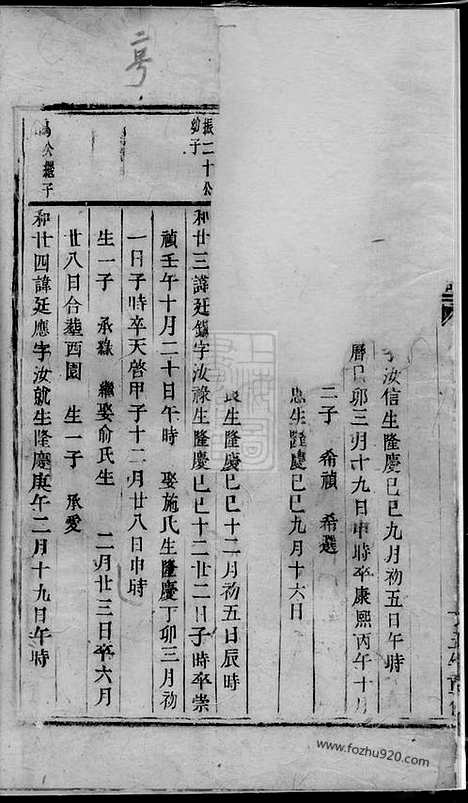 字汝信生隆慶己巳九月初五日午時
曆己卯三月十九日申時卒康熙丙午十月
二子 希禎 希選
忠生隆慶己巳九月十六日
良生隆慶己巳十二月初五日辰時
振二十公
幼子
和廿三諱廷鑑字汝祿生隆慶己巳十二廿二日子時卒崇
禎壬午十月二十日午時 娶施氏生隆慶丁卯三月初
一日子時卒天啓甲子十二月廿八日申時
生一子 承祿 繼娶俞氏生 二月廿三日卒六月
廿八日合塟西園 生一子 承爱
公繼子
和廿四諱廷應字汝就生隆慶庚午二月十九日午時
二号
www.fozhu920.com